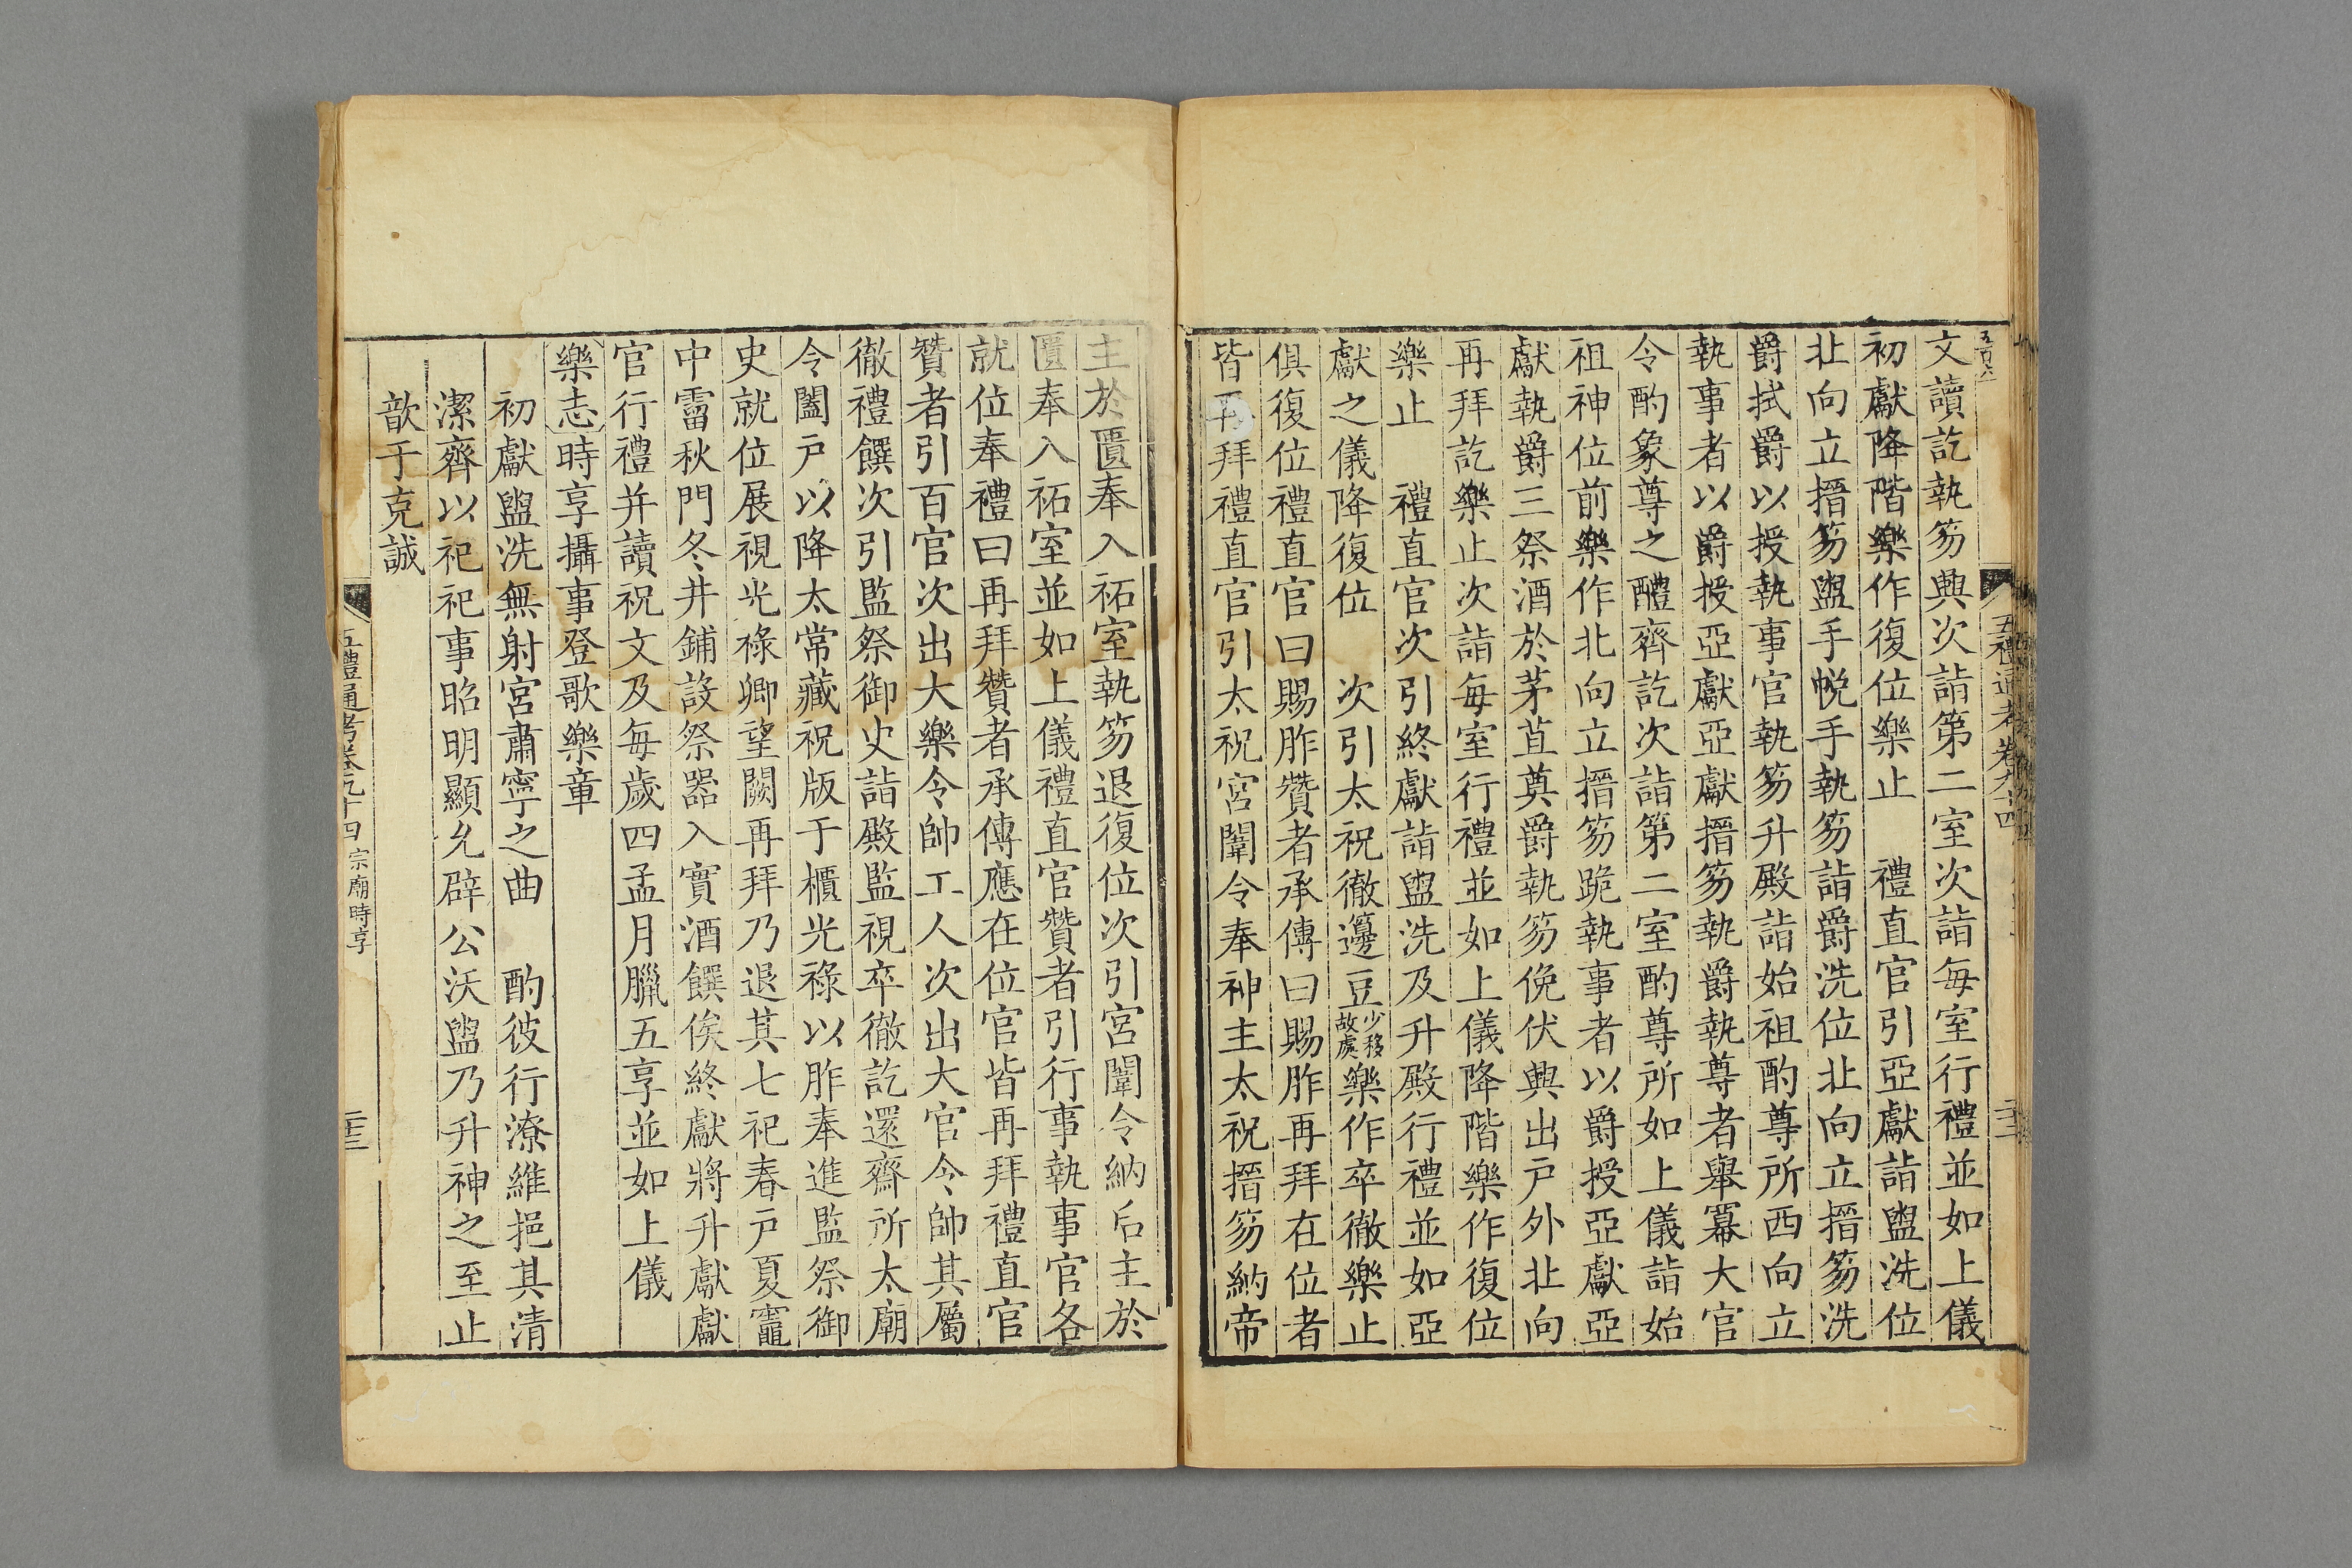 文讀訖執笏興次詣第二室次詣每室行禮並如上儀
初獻降階樂作復位樂止　禮直官引亞獻詣盥洗位
北向立搢笏盥手帨手執笏詣爵洗位北向立搢笏洗
爵拭爵以授執事官執笏升殿詣始祖酌尊所西向立
執事者以爵授亞獻亞獻搢笏執爵執尊者舉冪大官
令酌象尊之醴齊訖次詣第二室酌尊所如上儀詣始
祖神位前樂作北向立搢笏跪執事者以爵授亞獻亞
獻執爵三祭酒於茅苴奠爵執笏俛伏興出戸外北向
再拜訖樂止次詣每室行禮並如上儀降階樂作復位
樂止　禮直官次引終獻詣盥洗及升殿行禮並如亞
獻之儀降復位　次引太祝徹籩豆少移故處樂作卒徹樂止
俱復位禮直官曰賜胙贊者承傳曰賜胙再拜在位者
皆再拜禮直官引太祝宮闈令奉神主太祝搢笏納帝
主於匱奉入祏室執笏退復位次引宮闈令納后主於
匱奉入祏室並如上儀禮直官贊者引行事執事官各
就位奉禮曰再拜贊者承傳應在位官皆再拜禮直官
贊者引百官次出大樂令帥工人次出大官令帥其屬
徹禮饌次引監祭御史詣殿監視卒徹訖還齋所太廟
令闔戸以降太常藏祝版于櫃光祿以胙奉進監祭御
史就位展視光祿卿望闕再拜乃退其七祀春戸夏竈
中霤秋門冬井鋪設祭器入實酒饌俟終獻將升獻獻
官行禮并讀祝文及每歲四孟月臘五享並如上儀
樂志時享攝事登歌樂章
初獻盥洗無射宮肅寧之曲　酌彼行潦維挹其清
潔齊以祀祀事昭明顯允辟公沃盥乃升神之至止
歆于克誠
五禮通考卷九十四　宗廟時享